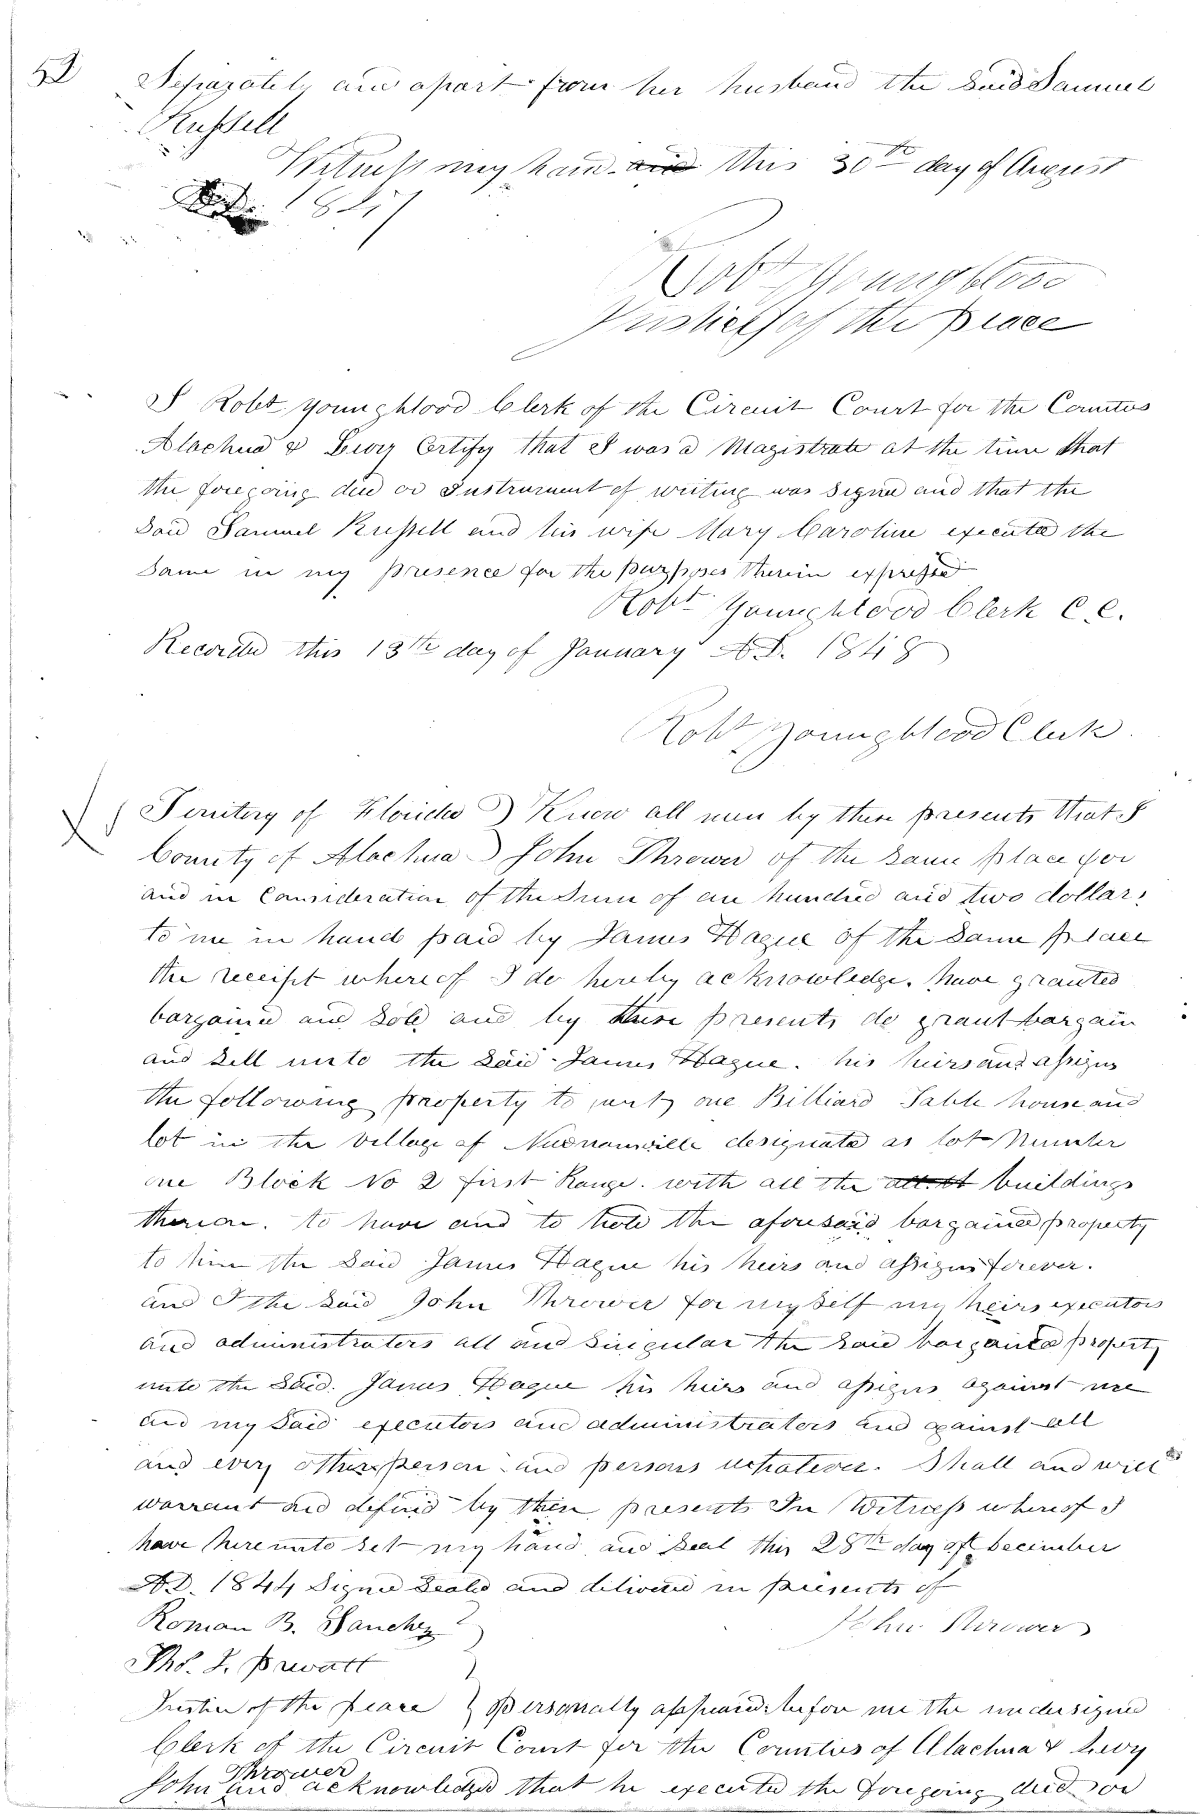 52
Separately and apart from her husband the Said Samuel
Russell
Witness my hand and this 30th day of August
1847
Robt Youngblood
Justice of the peace
I Robt Youngblood Clerk of the Circuit Court for the Counties
Alachua & Levy Certify that I was a Magistrate at the time that
the foregoing deed or Instrument of writing was Signed and that the
Said Samuel Russell and his wife Mary Caroline executed the
Same in my presence for the purposes therein expressed
Robt Youngblood Clerk C.C.
Recorded this 13th day of January A.D. 1848
Robt Youngblood Clerk
Territory of Florida ) Know all men by these presents that I
County of Alachua ) John Thrower of the Same place for
and in Consideration of the Sum of one hundred and two dollars
to me in hand paid by James Hague of the Same place
the receipt whereof I do hereby acknowledge, have granted
bargained and Sold and by these presents do grant bargain
and Sell unto the Said James Hague. his heirs and assigns
the following property to wit, one Billiard Table house and
lot in the Village of Newnansville designated as lot Number
one Block No 2 first Range. with all the buildings
thereon. to have and to hold the aforesaid bargained property
to him the Said James Hague his heirs and assigns forever.
and I the Said John Thrower for myself my heirs executors
and administrators all and Singular the Said bargained property
unto the Said. James Hague his heirs and assigns against me
and my Said executors and administrators and against all
and every other person and persons whatever. Shall and will
warrant and defend by these presents In Witness whereof I
have hereunto Set my hand and Seal this 28th day of December
A.D. 1844 Signed Sealed and delivered in presents of
Roman B. Sanchez John Thrower
Thos. J. Prevatt
Justice of the peace } Personally appeared before me the undersigned
Clerk of the Circuit Court for the Counties of Alachua & Levy
John Thrower and acknowledged that he executed the foregoing deed or